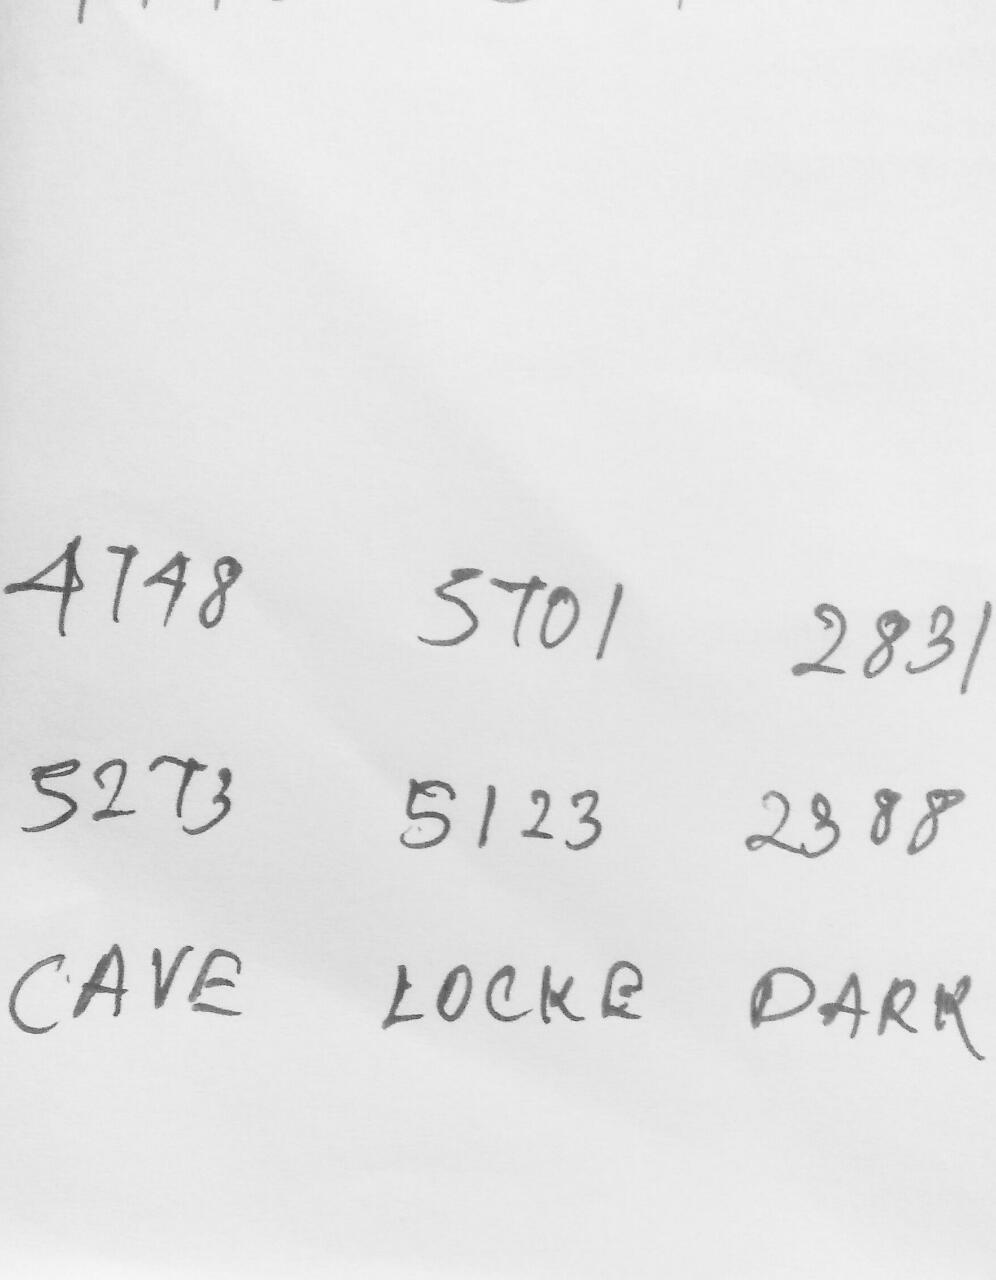 4748 5701 2831
5273 5123 2388
CAVE LOCKE DARK